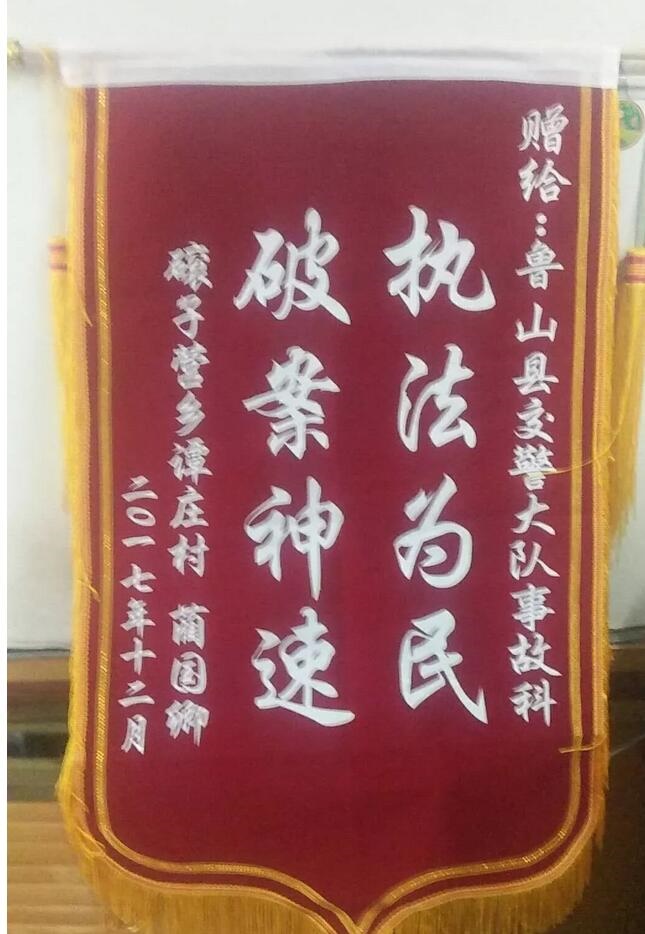 赠给：鲁山县交警大队事故科
执法为民
破案神速
磙子营乡谭庄村 蔺国卿
二〇一七年十二月